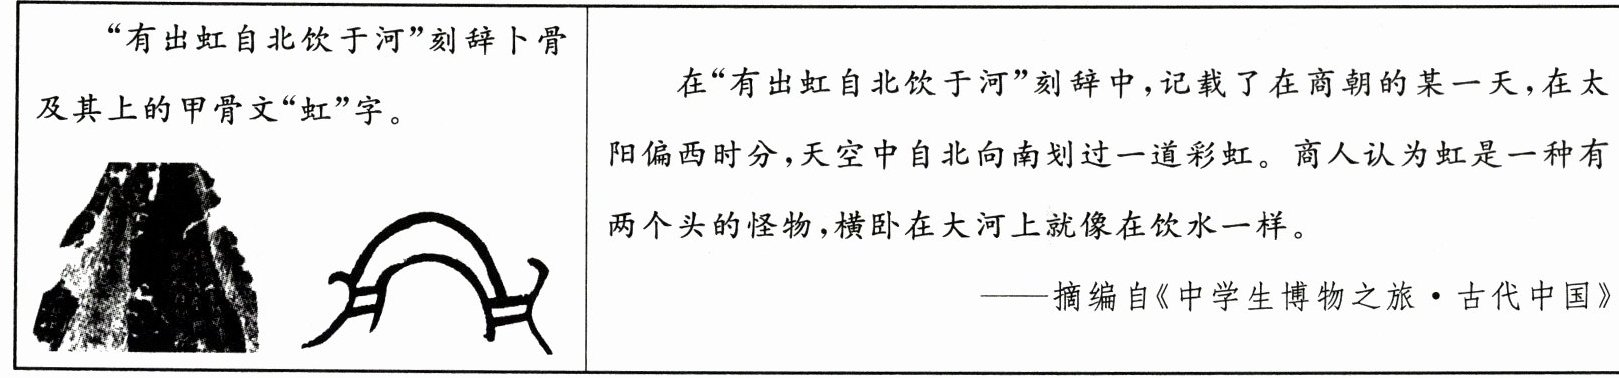 “有出虹自北饮于河”刻辞卜骨
及其上的甲骨文“虹”字。
在“有出虹自北饮于河”刻辞中,记载了在商朝的某一天,在太
阳偏西时分,天空中自北向南划过一道彩虹。商人认为虹是一种有
两个头的怪物,横卧在大河上就像在饮水一样。
——摘编自《中学生博物之旅·古代中国》